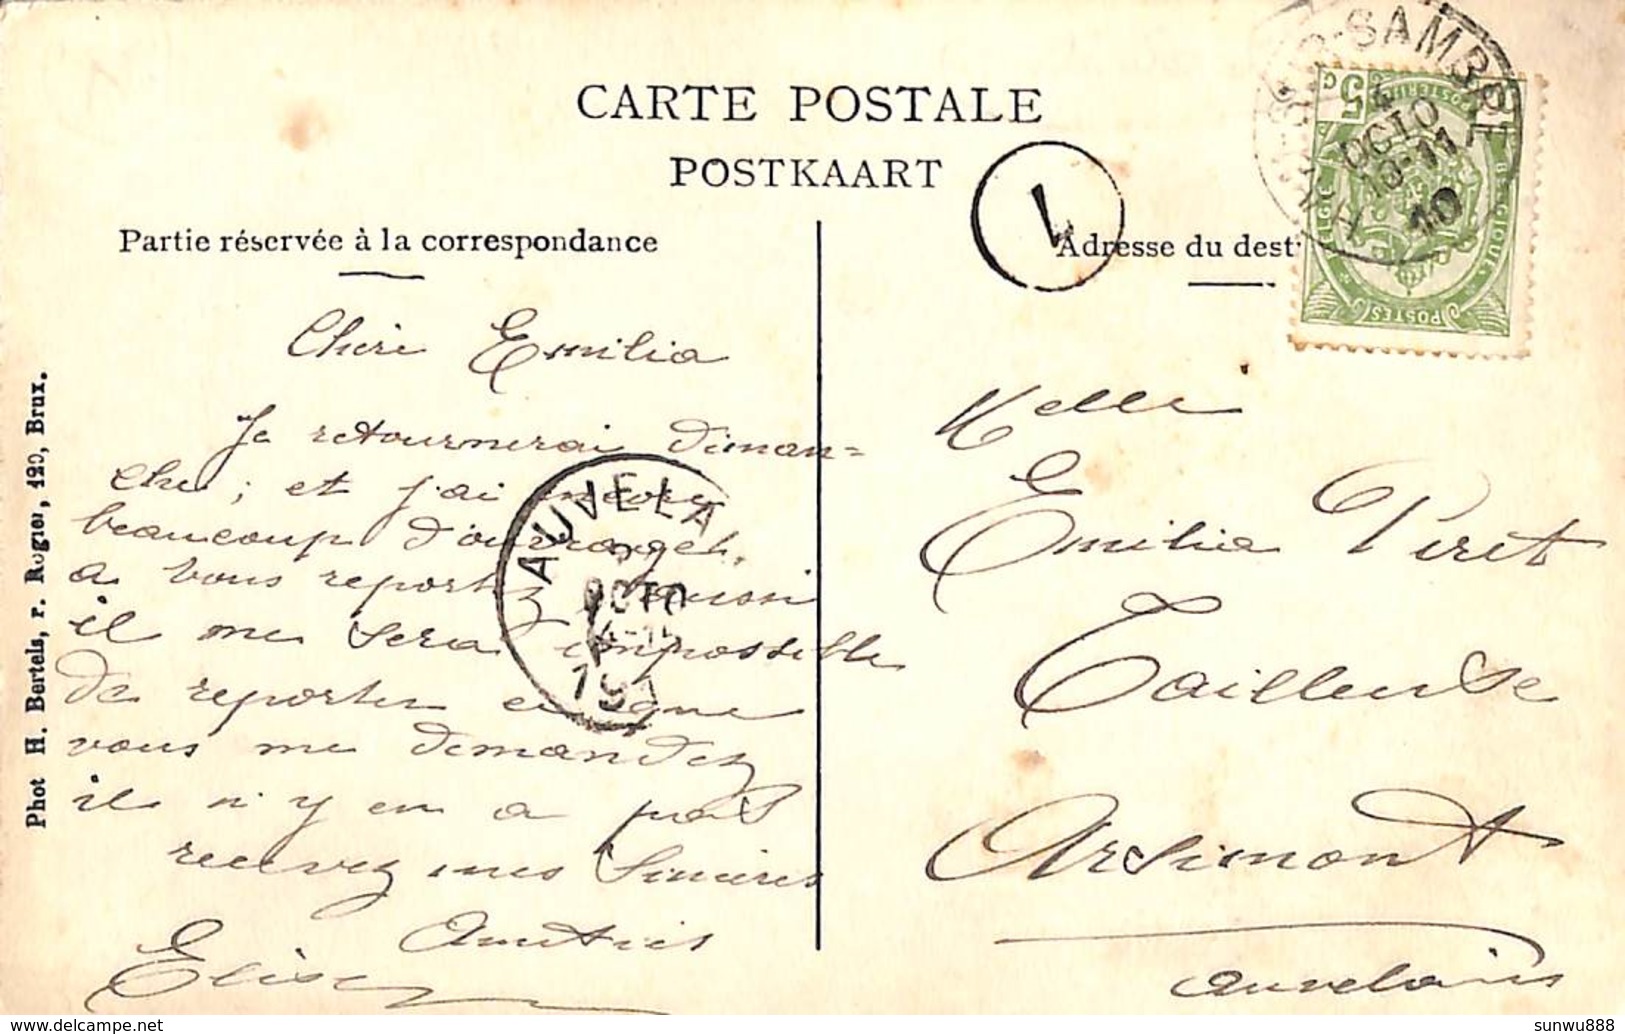 CARTE POSTALE
POSTKAART
Partie réservée à la correspondance
Adresse du dest
Phot H. Bertels, r. Rogier, 120, Brux.
Chère Emilia
Je retournerai diman=
che ; et j'ai encore
beaucoup d'ouvrage
a vous reporter aussi
il me sera impossible
de reporter ce que
vous me demandez
il n'y en a pas
recevez mes sincères
Amitiés
Elise
Melle
Emilia Piret
Tailleuse
Arsimont
Auvelais
1
HAM-SUR-SAMBRE
4
OCTO
10-11
10
5 c
BELGIQUE
POSTES
AUVELA
OCTO
19
sunwu888
delcampe.net